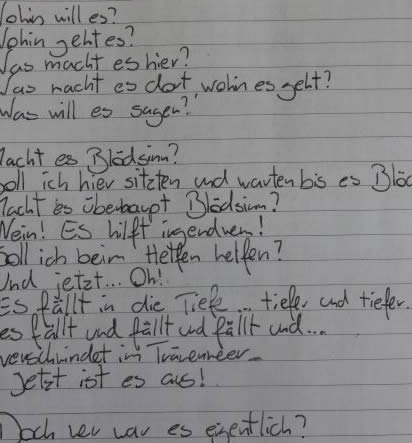 Wohin will es?
Wohin geht es?
Was macht es hier?
Was macht es dort, wohin es geht?
Was will es sagen?
Macht es Blödsinn?
Soll ich hier sitzten und warten bis es Blöd
Macht es überhaupt Blödsinn?
Nein! Es hilft irgendwem!
Soll ich beim Helfen helfen?
Und jetzt... Oh!
Es fällt in die Tiefe... tiefer und tiefer...
es fällt und fällt und fällt und...
verschwindet im Tränenmeer
Jetzt ist es aus!
Doch wer war es eigentlich?